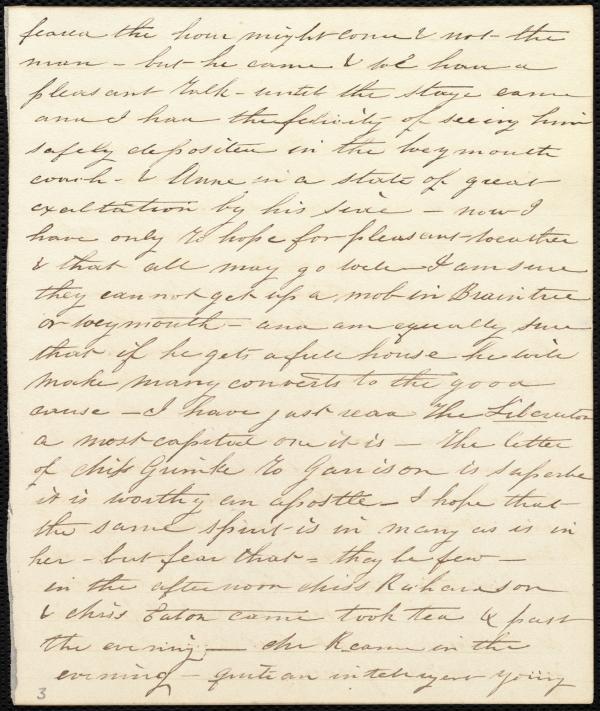 feared the hour might come & not the
man - but he came & we had a
pleasant talk - until the stage came
and I had the felicity of seeing him
safely deposited in the Weymouth
coach - & Anne in a state of great
exaltation by his side - now I
have only to hope for pleasant weather
& that all may go well - I am sure
they can not get up a mob in Braintree
or Weymouth - and am equally sure
that if he gets a full house he will
make many converts to the good
cause - I have just read The Liberator
a most capital one it is - the letter
of Miss Grimke to Garrison is superbe
it is worthy an apostle - I hope that
the same spirit is in many as is in
her - but fear that = they be few -
in the afternoon Miss Richardson
& Miss Eaton came took tea & past
the evening - Mr R came in the
evening - quite an intelligent young
3